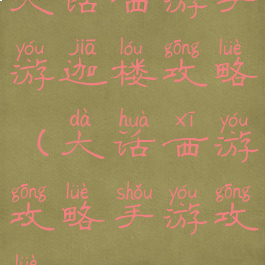 大话西游手
yóu jiā lóu gōng lüè
游迦楼攻略
dà huà xī yóu
（大话西游
gōng lüè shǒu yóu gōng
攻略手游攻
lüè